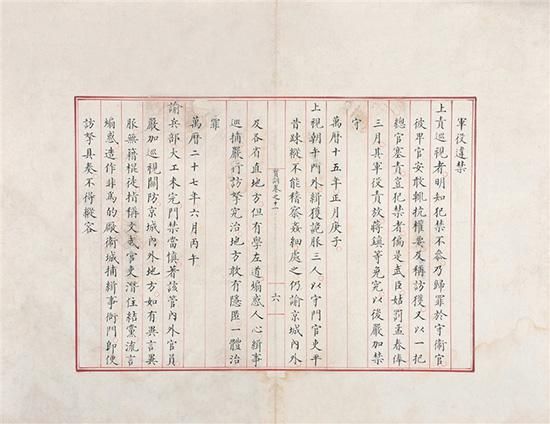 軍役違禁
上責巡視者明知犯禁不參乃歸罪於守衛官
彼畢官安敢輒抗權要及稱訪獲又以一把
總官塞責豈犯禁者偏是武臣姑罰孟春俸
三月其軍役責放蔣鎮等免究以後嚴加禁
守
萬曆十五年正月庚子
上視朝午門外緝獲詭服三人以守門官吏平
昔踈縱不能稽察姦細處之仍諭京城內外
寶訓卷之十一
六
及各省直地方但有學左道煽惑人心緝事
巡捕嚴行訪拏究治地方敢有隱匿一體治
罪
萬曆二十七年六月丙午
諭兵部大工未完門禁當慎著該管內外官員
嚴加巡視關防京城內外地方如有異言異
服無藉棍徒指稱文武官吏潛住結黨流言
煽惑造作非為的廠衛城捕緝事衙門即便
訪拏具奏不得縱容